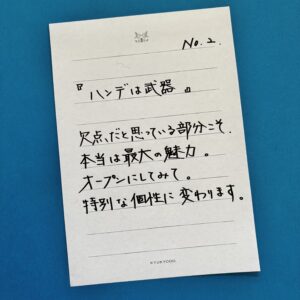 No.2.
『ハンデは武器』
欠点だと思っている部分こそ、
本当は最大の魅力。
オープンにしてみて。
特別な個性に変わります。
KYUKYODO